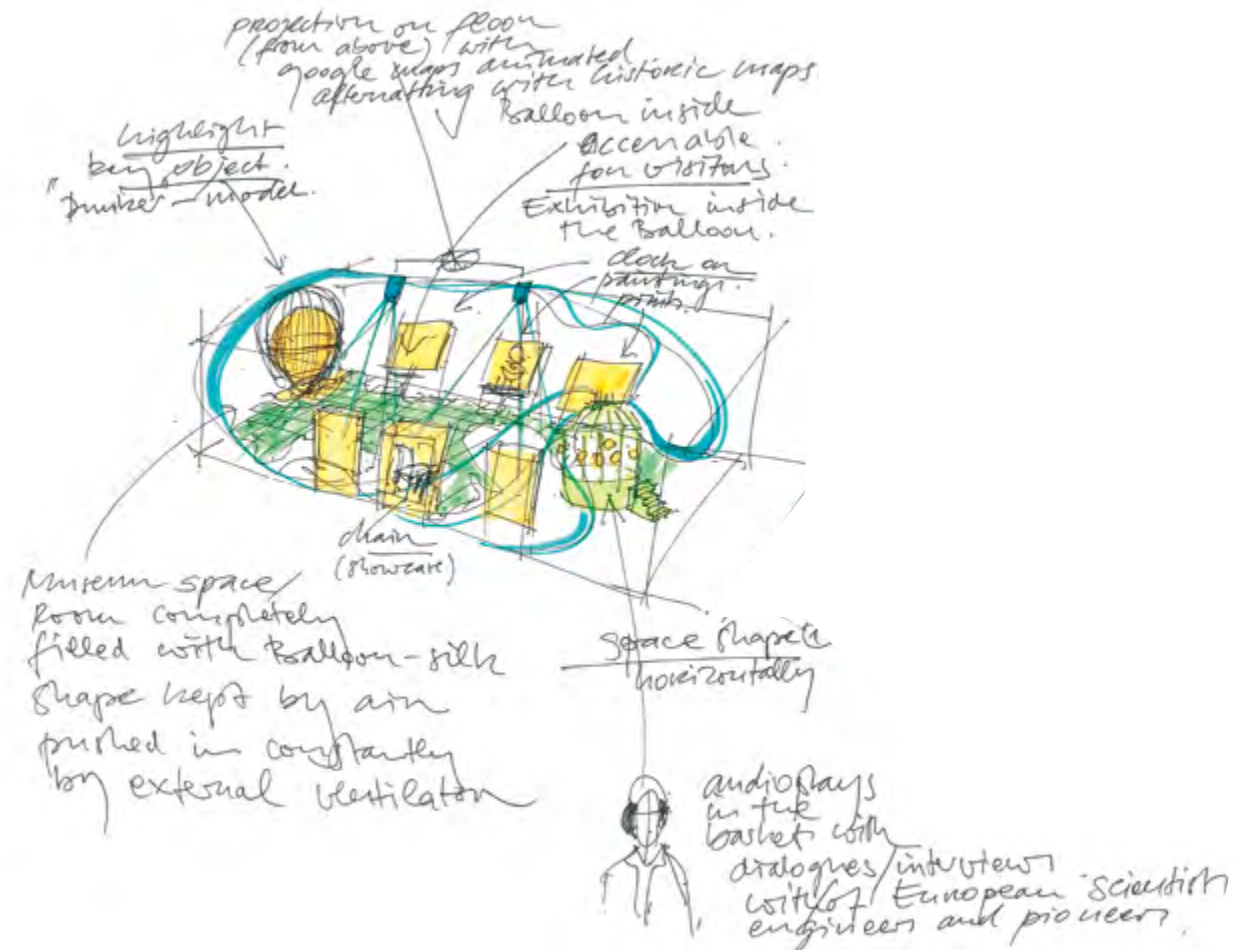 projection on floor
(from above) with
google maps animated
alternatting with historic maps
Balloon inside
accenable
for visitors.
Exhibition inside
the Balloon.
highlight
key object.
model.
clock on
paintings.
prints.
chain
(showcase)
Museum space/
Room completely
filled with Balloon-silk
shape kept by air
pushed in constantly
by external ventilator
space shaped
horizontally
audioplays
in the
basket with
dialogues/interviews
with/of European scientists
engineers and pioneers.